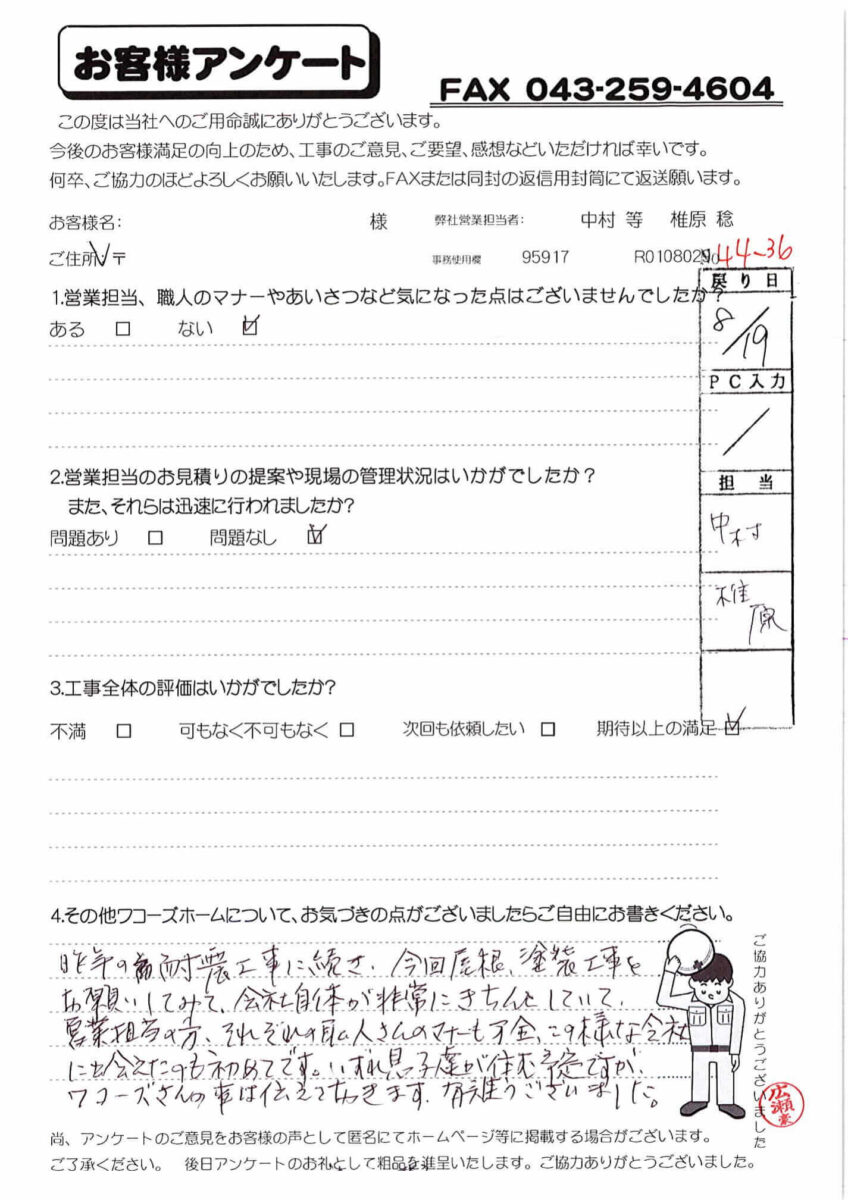 お客様アンケート
FAX 043-259-4604
この度は当社へのご用命誠にありがとうございます。
今後のお客様満足の向上のため、工事のご意見、ご要望、感想などいただければ幸いです。
何卒、ご協力のほどよろしくお願いいたします。FAXまたは同封の返信用封筒にて返送願います。
お客様名: 様 弊社営業担当者: 中村 等 椎原 稔
ご住所 〒 事務使用欄 95917 R0108029 44-36
戻り日
8/19
PC入力
担当
中村
椎原
1.営業担当、職人のマナーやあいさつなど気になった点はございませんでしたか?
ある □ ない ☑
2.営業担当のお見積りの提案や現場の管理状況はいかがでしたか?
また、それらは迅速に行われましたか?
問題あり □ 問題なし ☑
3.工事全体の評価はいかがでしたか?
不満 □ 可もなく不可もなく □ 次回も依頼したい □ 期待以上の満足 ☑
4.その他ワコーズホームについて、お気づきの点がございましたらご自由にお書きください。
昨年の耐震工事に続き、今回屋根、塗装工事を
お願いしてみて、会社自体が非常にきちんとしていて、
営業担当の方、それぞれの職人さんのマナーも万全、この様な会社
に出会えたのも初めてです。いずれ息子達が住む予定ですが、
ワコーズさんの事は伝えておきます。有難うございました。
ご協力ありがとうございました
広瀬
尚、アンケートのご意見をお客様の声として匿名にてホームページ等に掲載する場合がございます。
ご了承ください。 後日アンケートのお礼として粗品を進呈いたします。ご協力ありがとうございました。